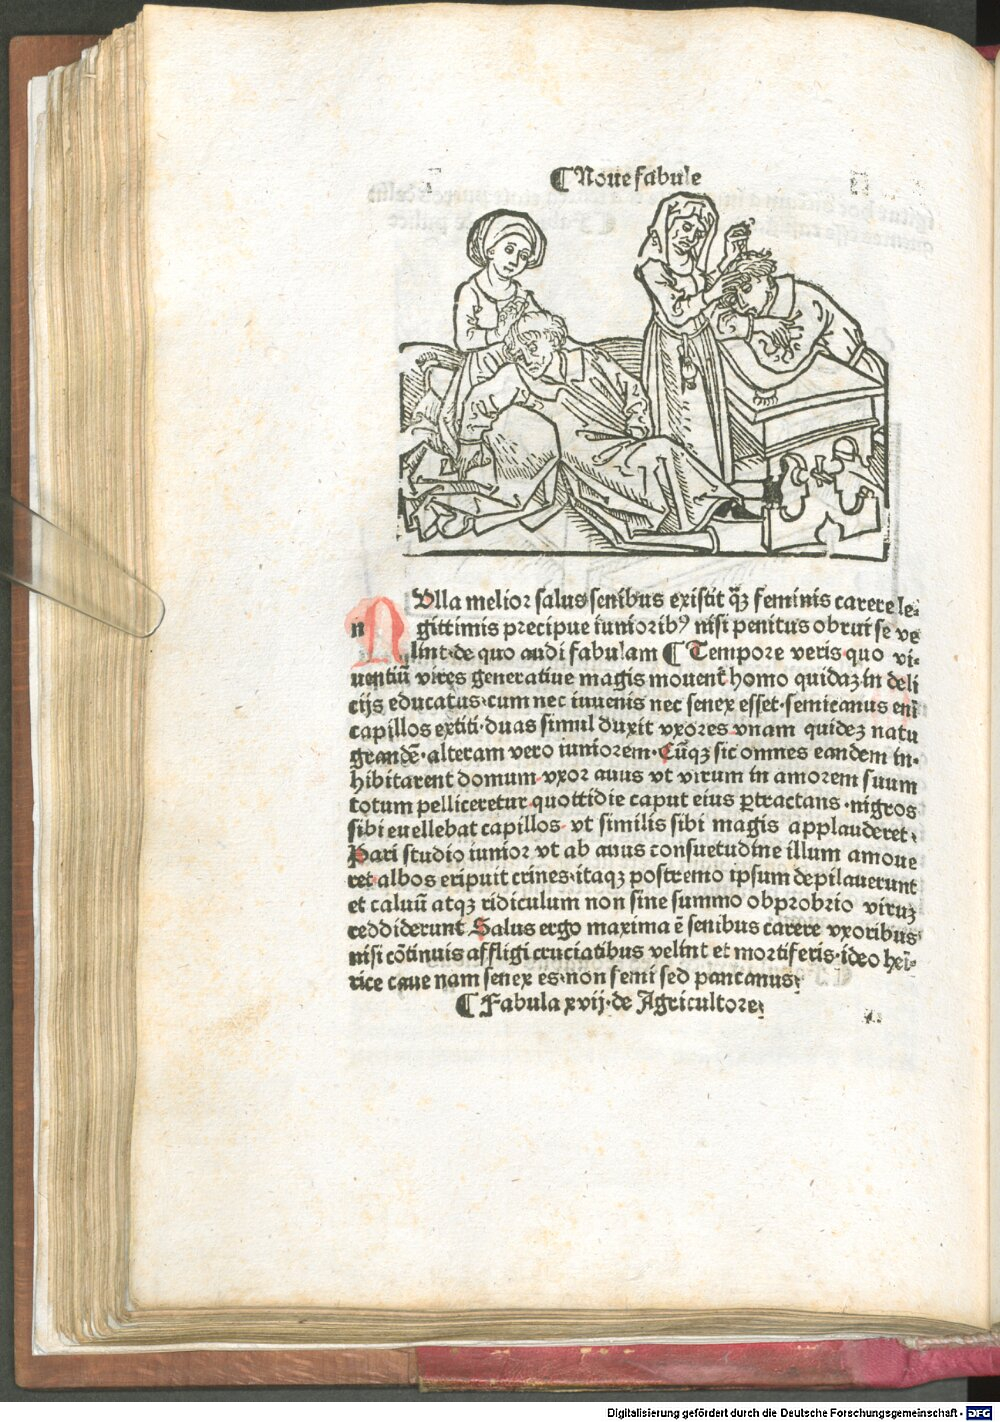 ¶Noue fabule
NUlla melior salus senibus existit q̃ꝫ feminis carere le⸗
n gittimis precipue iuniorib⁹ nisi penitus obrui se ve
lint·de quo audi fabulam ¶Tempore veris quo vi⸗
uentiū vires generatiue magis mouent̃ homo quidaꝫ in deli
cijs educatus·cum nec iuuenis nec senex esset·semicanus eni
capillos extiti·duas simul duxit vxores vnam quideꝫ natu
grandē·alteram vero iuniorem·Cūqꝫ sic omnes eandem in⸗
hibitarent domum·vxor anus vt virum in amorem suum
totum pelliceretur quottidie caput eius ꝑtractans·nigros
sibi euellebat capillos· vt similis sibi magis applauderet·
Pari studio iunior vt ab anus consuetudine illum amoue
ret albos eripuit crines·itaqꝫ postremo ipsum depilauerunt
et caluū atqꝫ ridiculum non sine summo obprobrio viruꝫ
reddiderunt Salus ergo maxima ē senibus carere vxoribus
nisi cōtinuis affligi cruciatibus velint et mortiferis·ideo hei⸗
rice caue nam senex es·non semi sed pancanus·
¶Fabula xvij·de Agricultore·
Digitalisierung gefördert durch die Deutsche Forschungsgemeinschaft - DFG